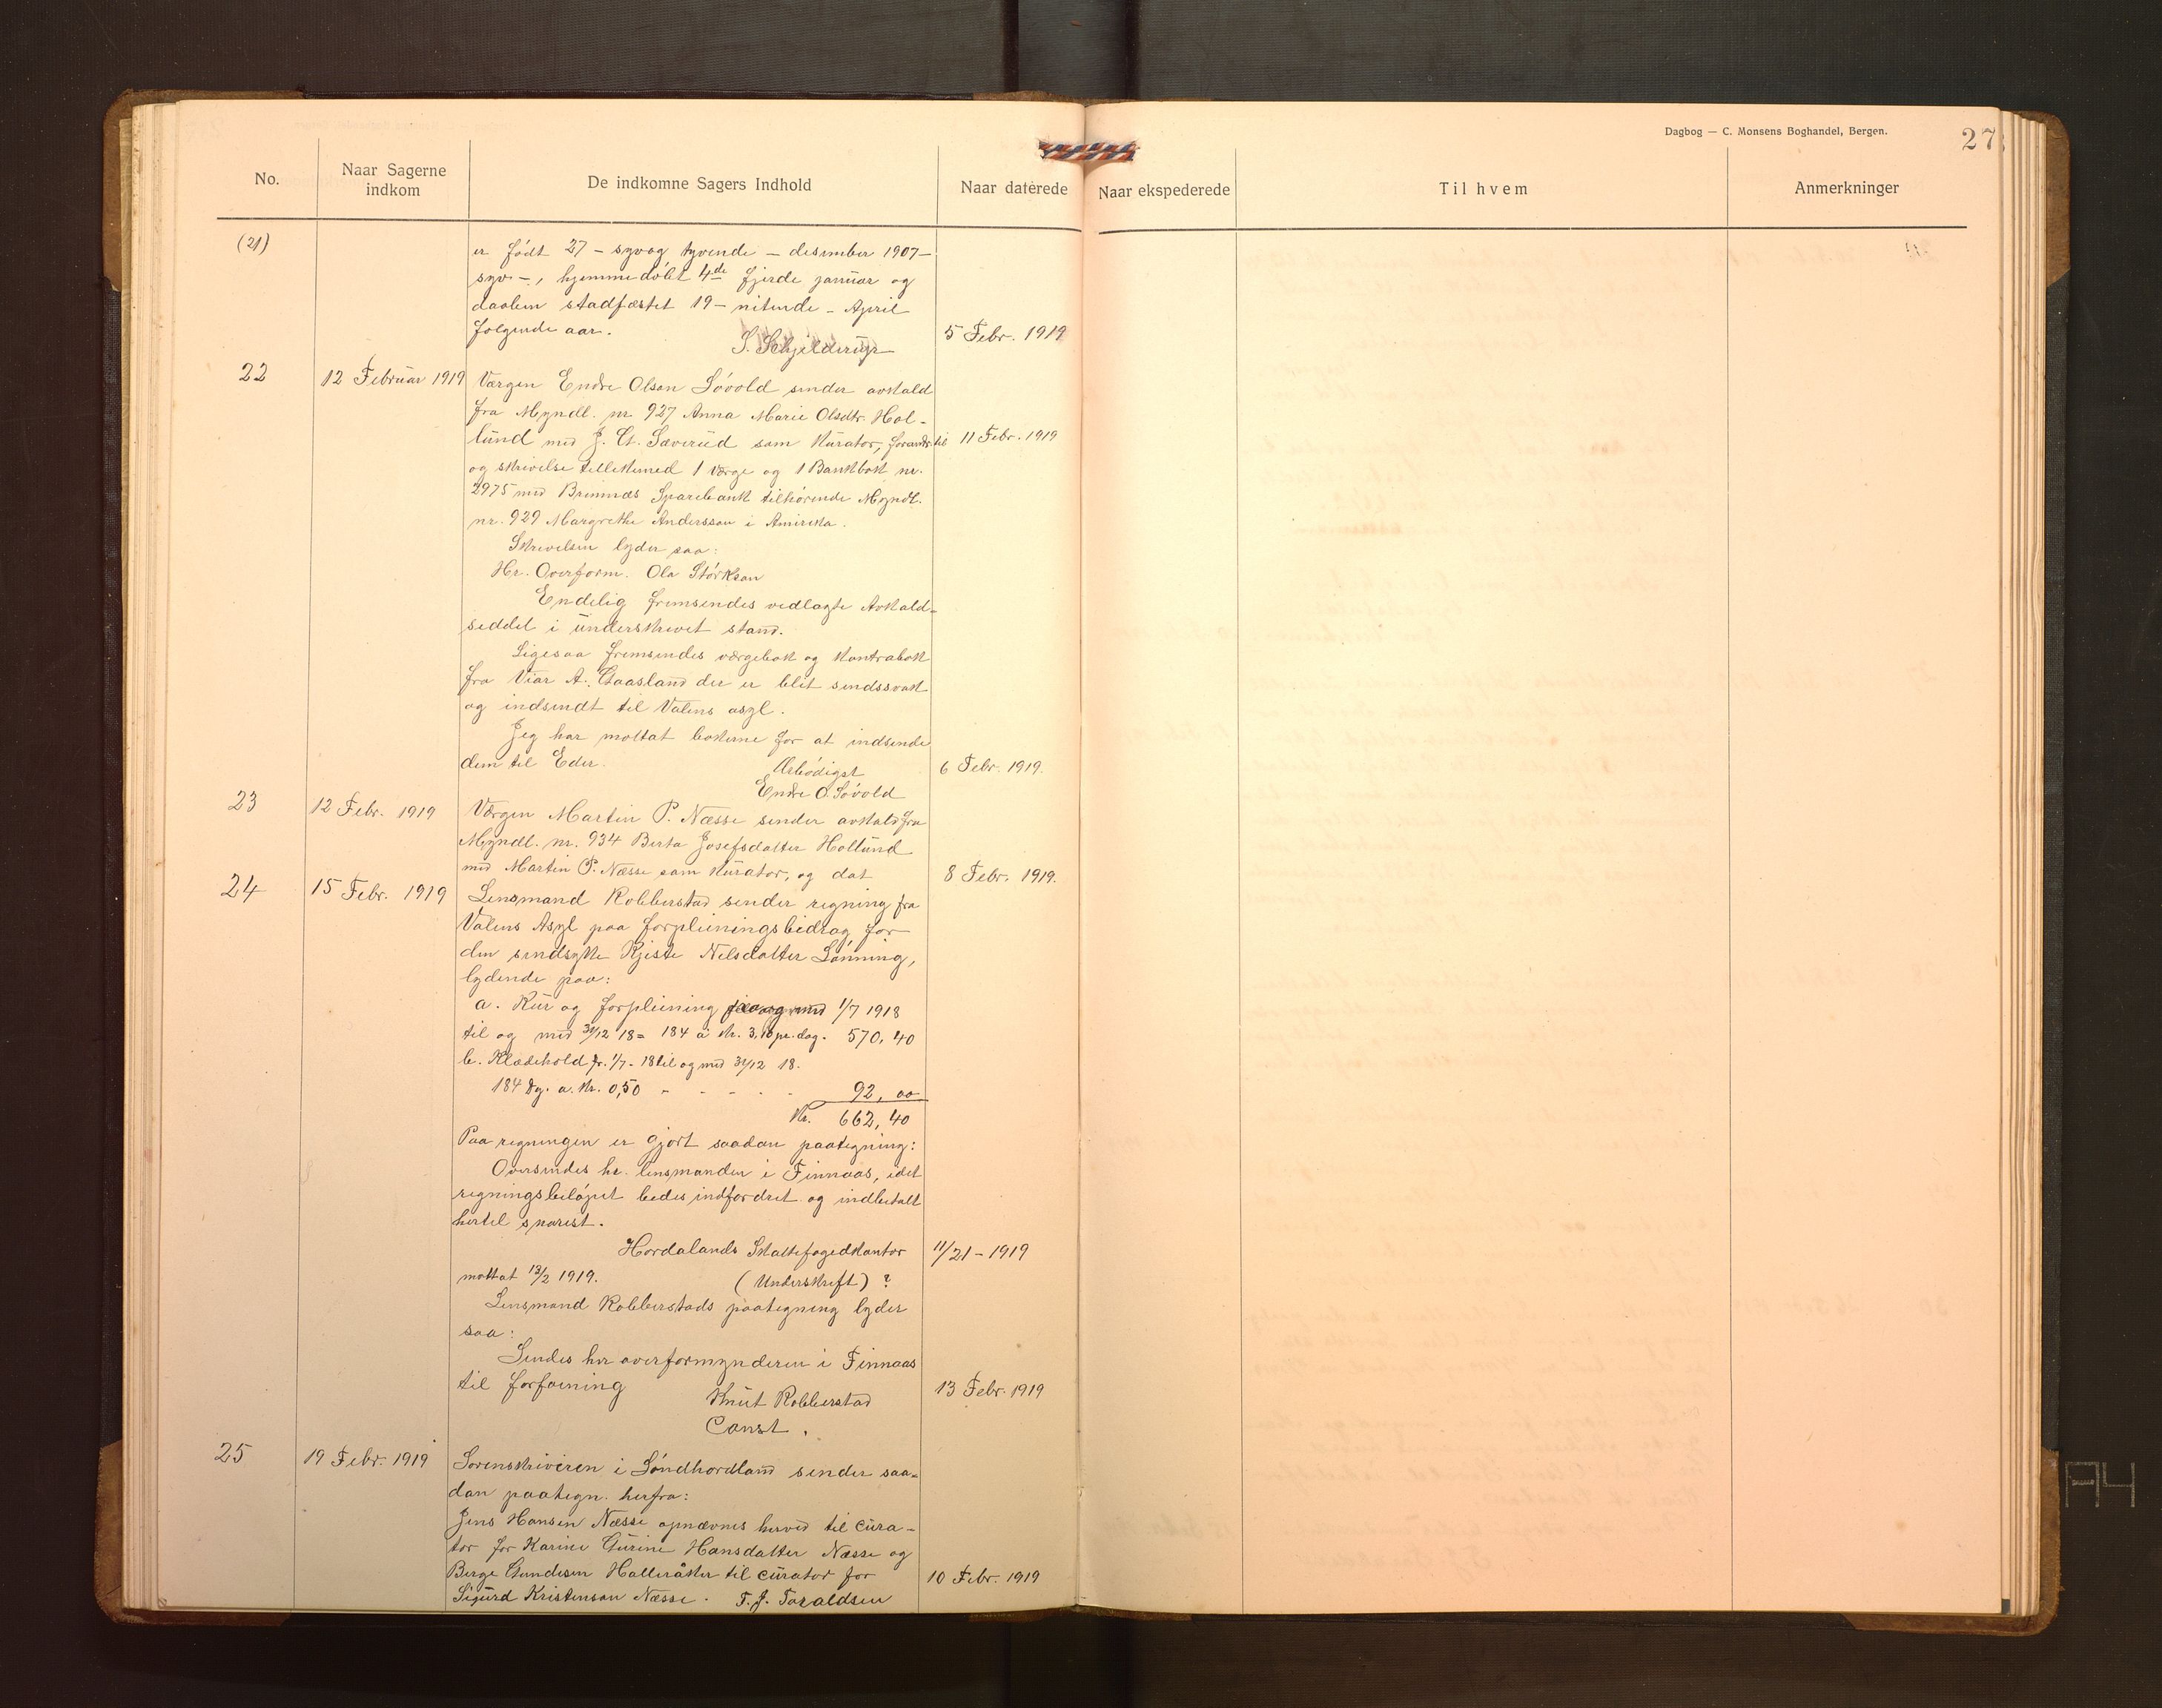 Dagbog — C. Monsens Boghandel, Bergen.
27
No.
Naar Sagerne
indkom
De indkomne Sagers Indhold
Naar daterede
Naar ekspederede
Til hvem
Anmerkninger
(21)
er født 27 - syvog tyvende - desember 1907-
syv -, hjemmedøbt 4de fjerde januar og
daaben stadfæstet 19 - nitende - April
følgende aar.
S. Schjelderup
5 Febr. 1919
22
12 Februar 1919
Værgen Endre Olson Løvold sender avkald
fra Myndl. nr. 927 Anna Marie Olsdtr. Hol-
lund med J. G. Sæverud som kurator,
11 Febr. 1919
og skrivelse tillikemed 1 værge og 1 Bankbok nr.
2975 med Bremnes Sparebank tilhørende Myndl.
nr. 929 Margrethe Andersson i Amireka.
Skrivelsen lyder saa:
Hr. Overform. Ola Størkson
Endelig fremsendes vedlagte Avkald-
seddel i underskrevet stand.
Ligesaa fremsendes værgebok og kontrabok
fra Viar A. Gaasland der er blit sindssvak
og indsendt til Valens asyl.
Jeg har mottat bøkerne for at indsende
dem til Eder.
Ærbødigst
6 Febr. 1919.
Endre O. Løvold
23
12 Febr. 1919
Værgen Martin P. Næsse sender avkald fra
Myndl. nr. 934 Berta Josefsdatter Hollund
med Martin P. Næsse som kurator, og dat
8 Febr. 1919.
24
15 Febr. 1919
Lensmand Robberstad sender regning fra
Valens Asyl paa forpleiningsbidrag for
den sindsyke Kjiste Nelsdatter Lønning,
lydende paa:
a. Kur og forpleining fra og med 1/7 1918
til og med 31/12 18 = 184 á kr. 3,10 pr. dag. 570,40
b. Klædehold fr. 1/7 - 18 til og med 31/12 18.
184 dg. a. kr. 0,50 - - - - - 92,00
Kr. 662,40
Paa regningen er gjort saadan paategning:
Oversendes hr. lensmanden i Finnaas, idet
regningsbeløpet bedes indfordret og indbetalt
hertil snarest.
Hordalands Skattefogedkontor
11/21 - 1919
mottat 13/2 1919.
(Underskrift) ?
Lensmand Robberstads paategning lyder
saa:
Sendes hr overformynderen i Finnaas
til forføining
13 Febr. 1919
Knut Robberstad
Const.
25
19 Febr. 1919
Sorenskriveren i Søndhordland sender saa-
dan paategn. herfra:
Jens Hansen Næsse opnævnes herved til cura-
tor for Karine Gurine Hansdatter Næsse og
Berge Gundesen Halleråker til curator for
10 Febr. 1919
Sigurd Kristenson Næsse. T. J. Taraldsen
A4